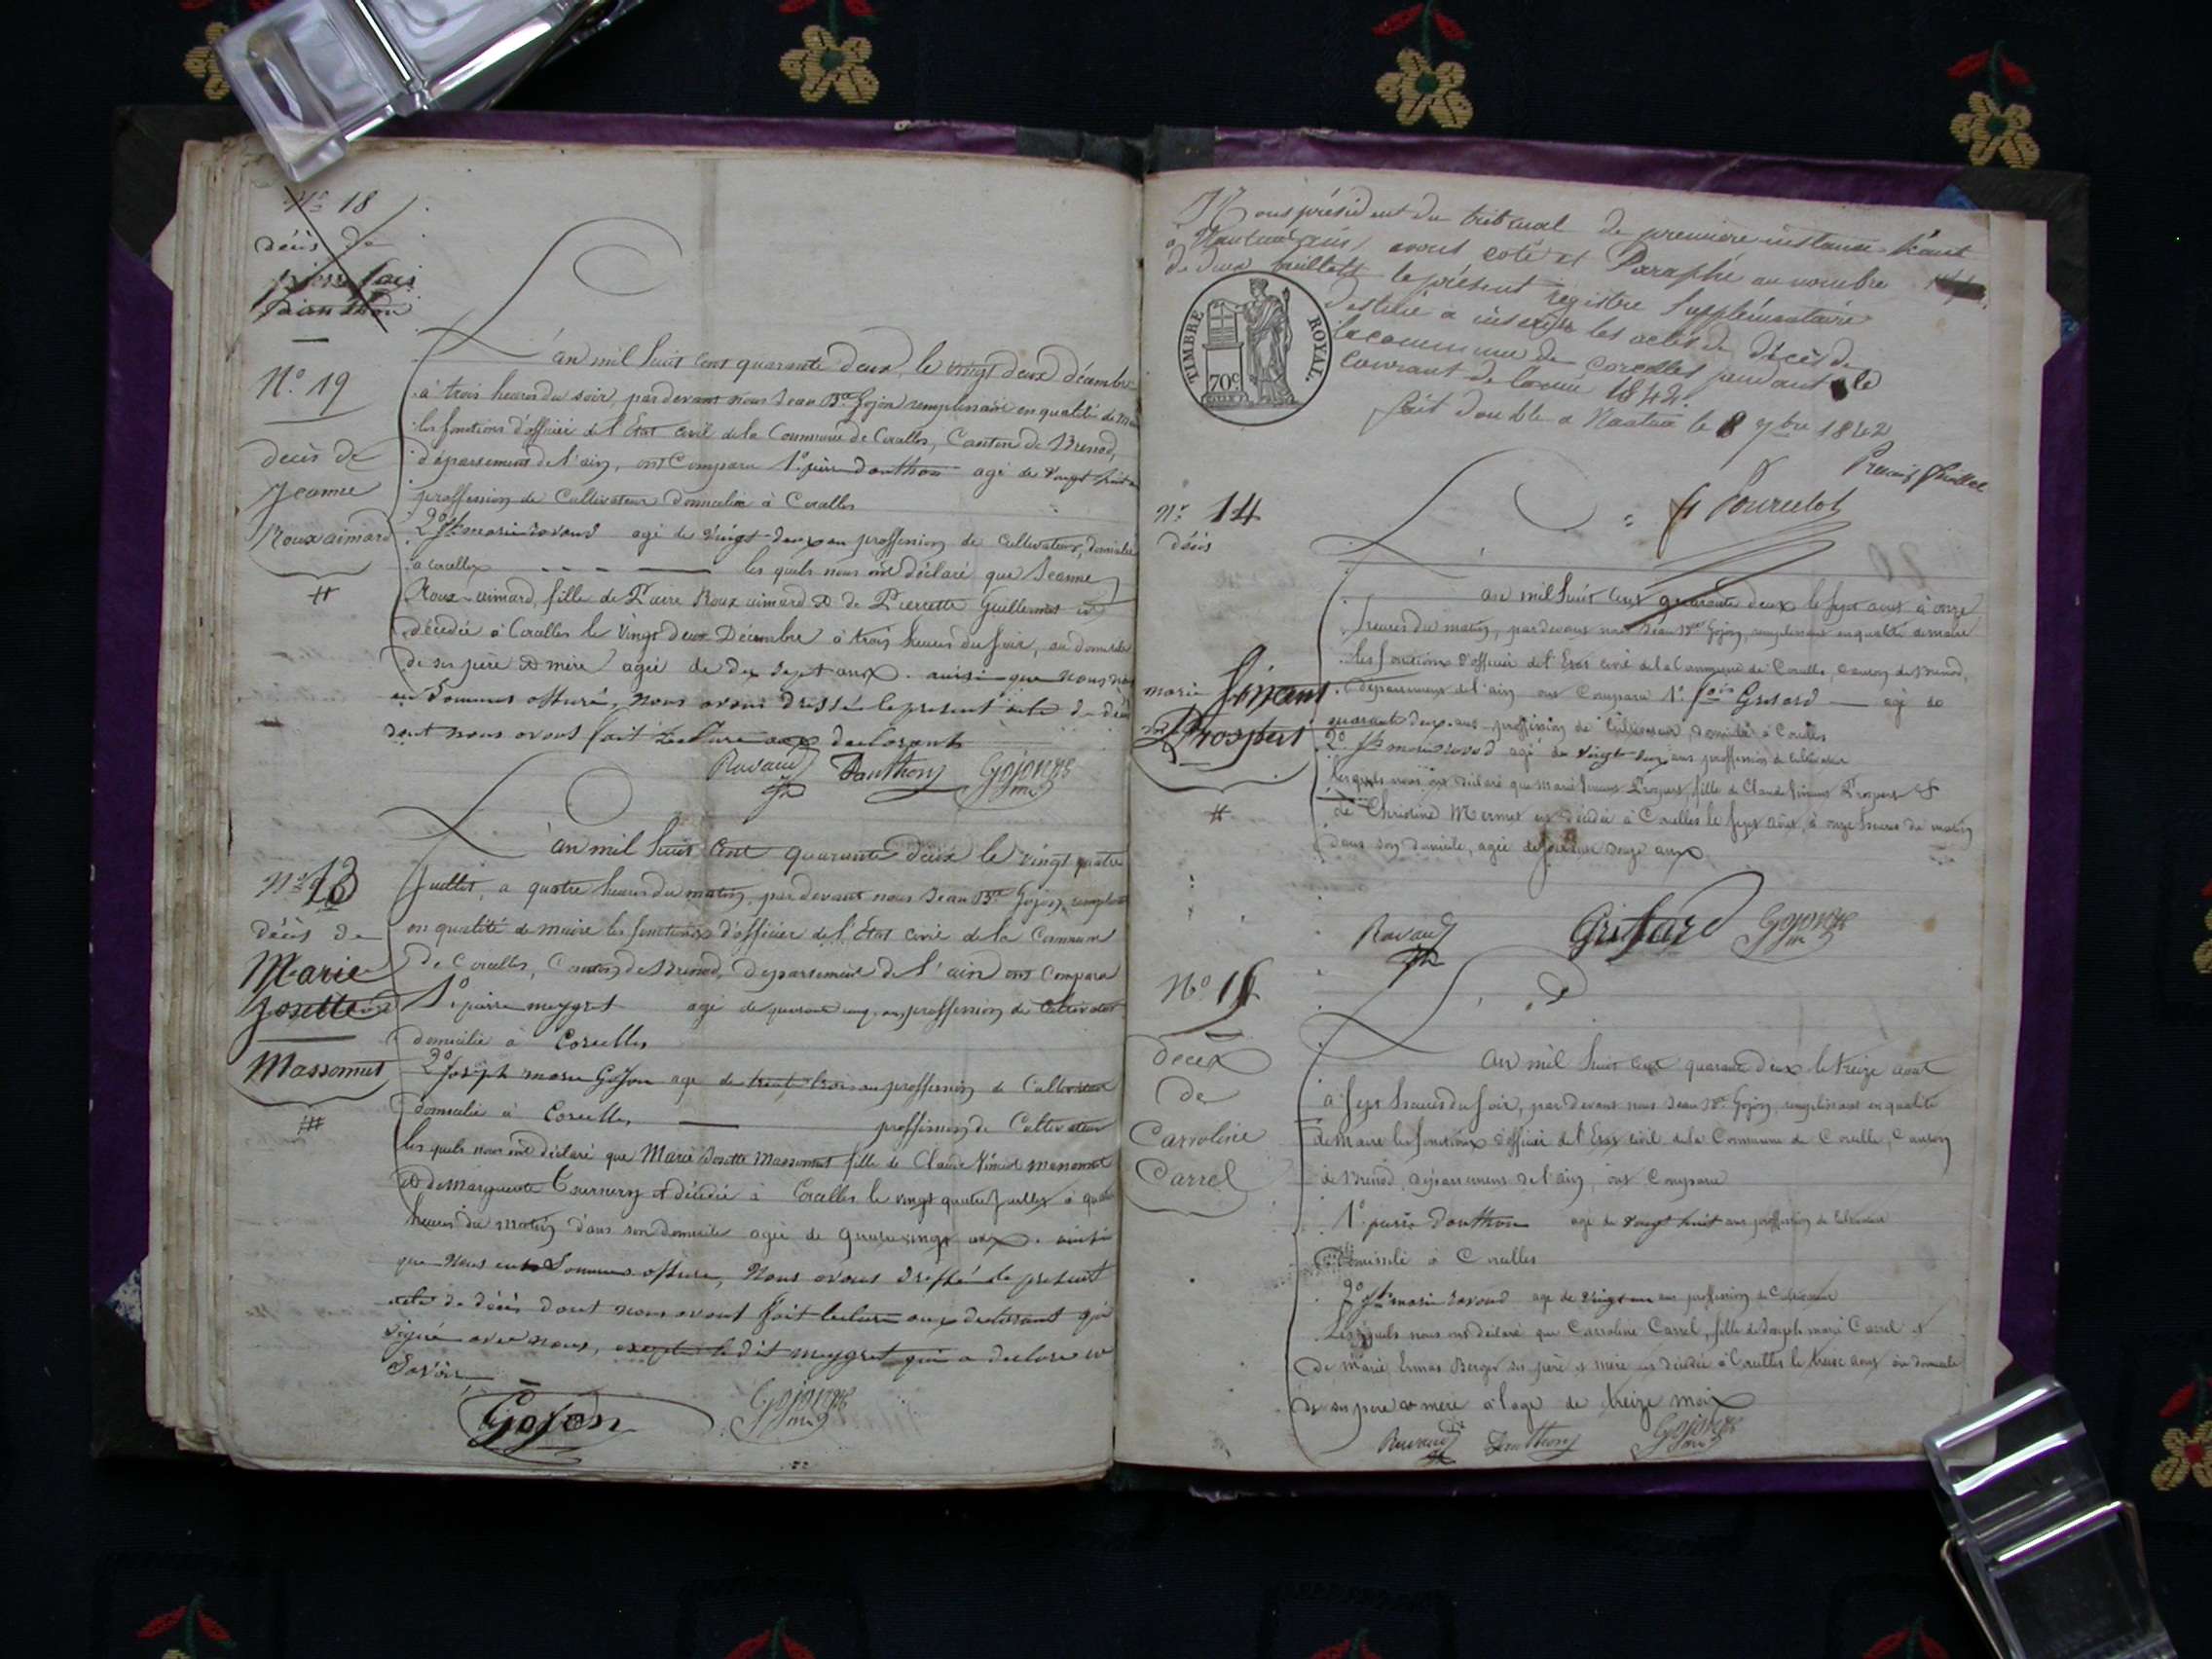 N° 18
décès de
N° 19
décès de
Jeanne
Roux aimard
L'an mil huit cent quarante deux, le vingt deux décembre
à trois heures du soir, pardevant nous Jean Bte Gojon remplissant en qualité de maire
les fonctions d'officier de l'état civil de la Commune de Corcelles, Canton de Brenod,
département de l'ain, ont Comparu 1° pierre Danthon agé de vingt huit
proffession de Cultivateur domicilié à Corcelles
2° marie ravaud agé de vingt-deux an proffession de Cultivateur, domicilié
à corcelles les quels nous ont déclaré que Jeanne
Roux-aimard, fille de Pierre Roux aimard et de Pierrette Guillermet est
décédée à Corcelles le vingt deux Décembre à trois heures du soir, au domicile
de ses père et mère agée de dix sept ans. ainsi que nous nous
en sommes assuré, nous avons dressé le présent acte de décès
dont nous avons fait Lecture aux declarants
Ravaud Danthon Gojon
N° 13
décès de
Marie
Josette
Massonnet
L'an mil huit cent quarante deux le vingt quatre
Juillet, a quatre heures du matin, pardevant nous Jean Bte Gojon, remplissant
en qualité de maire les fonctions d'officier de l'état civil de la Commune
de Corcelles, Canton de Brenod, département de l'ain ont Comparu
1° pierre meygret agé de quarante cinq ans, proffession de Cultivateur
domicilié à Corcelles
2° Joseph marie Gojon age de trente trois an proffession de Cultivateur
domicilié à Corcelles proffession de Cultivateur
les quels nous ont déclaré que Marie Josette Massonnet fille de Claude massonnet
et de Marguerite est décédée à Corcelles le vingt quatre Juillet à quatre
heures du matin dans son domicile agée de quatre vingt ans. ainsi
que nous nous en sommes assuré, Nous avons dressé le présent
acte de décès dont nous avons fait lecture aux declarant qui
signé avec nous, excepté le dit meygret qui a declaré ne
savoir
Gojon Gojon
Nous président du tribunal de premiere instance séant
à Nantua (ain) avons coté et Paraphé au nombre
de deux feuillets le présent registre supplémentaire
TIMBRE ROYAL. 70c.
destiné a inserer les actes de décès de
la commune de corcelles pendant le
courant de l'année 1842.
fait double a Nantua le 8 7bre 1842
N° 14
décès
marie
Prospert
L'an mil huit cent quarante deux le sept aout à onze
heures du matin, pardevant nous Jean Bte Gojon, remplissant en qualité de maire
les fonctions d'officier de l'Etat civil de la Commune de Corcelle, Canton de Brenod,
département de l'ain ont Comparu 1° Grisard agé de
quarante deux ans proffession de Cultivateur, domicilié à Corcelles
2° marie ravaud agé de vingt deux ans proffession de cultivateur
lesquels nous ont déclaré que marie Prospert, fille de Claude Prospert &
de Christine Mermet est décédée à Corcelles le sept août, à onze heures du matin
dans son domicile, agée de soixante douze ans
Ravaud Grisard Gojon
N° 15
décex
de
Carroline
Carrel
L'an mil huit cent quarante deux le treize aout
à sept heures du soir, pardevant nous Jean Bte Gojon, remplissant en qualité
de maire les fonctions d'officier de l'Etat civil de la Commune de Corcelle, Canton
de Brenod, département de l'ain, ont Comparu
1° pierre Danthon agé de vingt huit ans proffession de Cultivateur
domicilié à Corcelles
2° marie ravaud age de vingt un ans proffession de Cultivateur
Lesquels nous ont déclaré que Carroline Carrel, fille de Joseph marie Carrel et
de marie Berger ses père et mère est décédée à Corcelles le treize aout au domicile
de ses pere et mere à l'age de treize moix
Ravaud Danthon Gojon